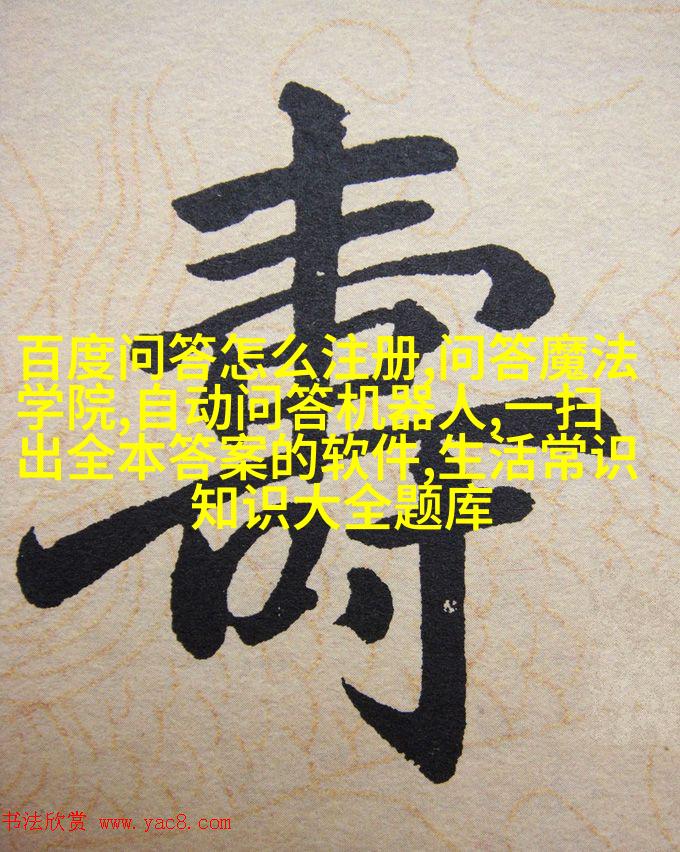 壽
百度问答怎么注册,问答魔法
学院,自动问答机器人,一扫
出全本答案的软件,生活常识
知识大全题库
书法欣赏 www.yac8.com